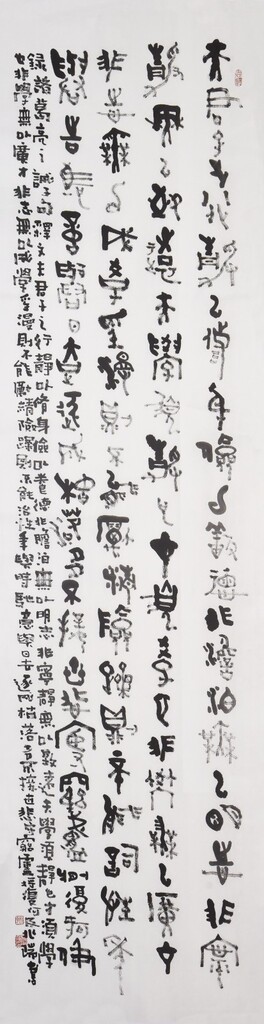 夫君子之行靜以修身儉以養德非澹泊無以明志非寧
靜無以致遠夫學須靜也才須學也非學無以廣才
非志無以成學淫慢則不能勵精險躁則不能冶性年
與時馳意與日去遂成枯落多不接世悲守窮廬將復何及
錄諸葛亮之誡子句釋文夫君子之行靜以修身儉以養德非澹泊無以明志非寧靜無以致遠夫學須靜也才須學
也非學無以廣才非志無以成學淫漫則不能勵精險躁則不能冶性年與時馳意與日去遂成枯落多不接世悲守窮廬將復何及